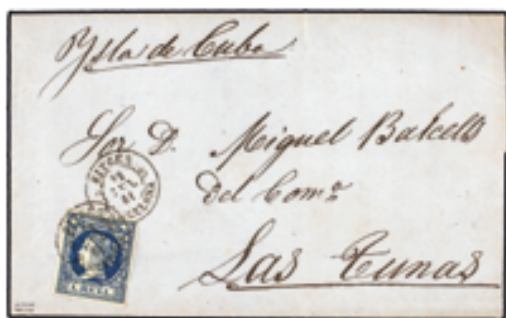 Ysla de Cuba
Sor D. Miguel Balcells
del Com.º
Las Tunas